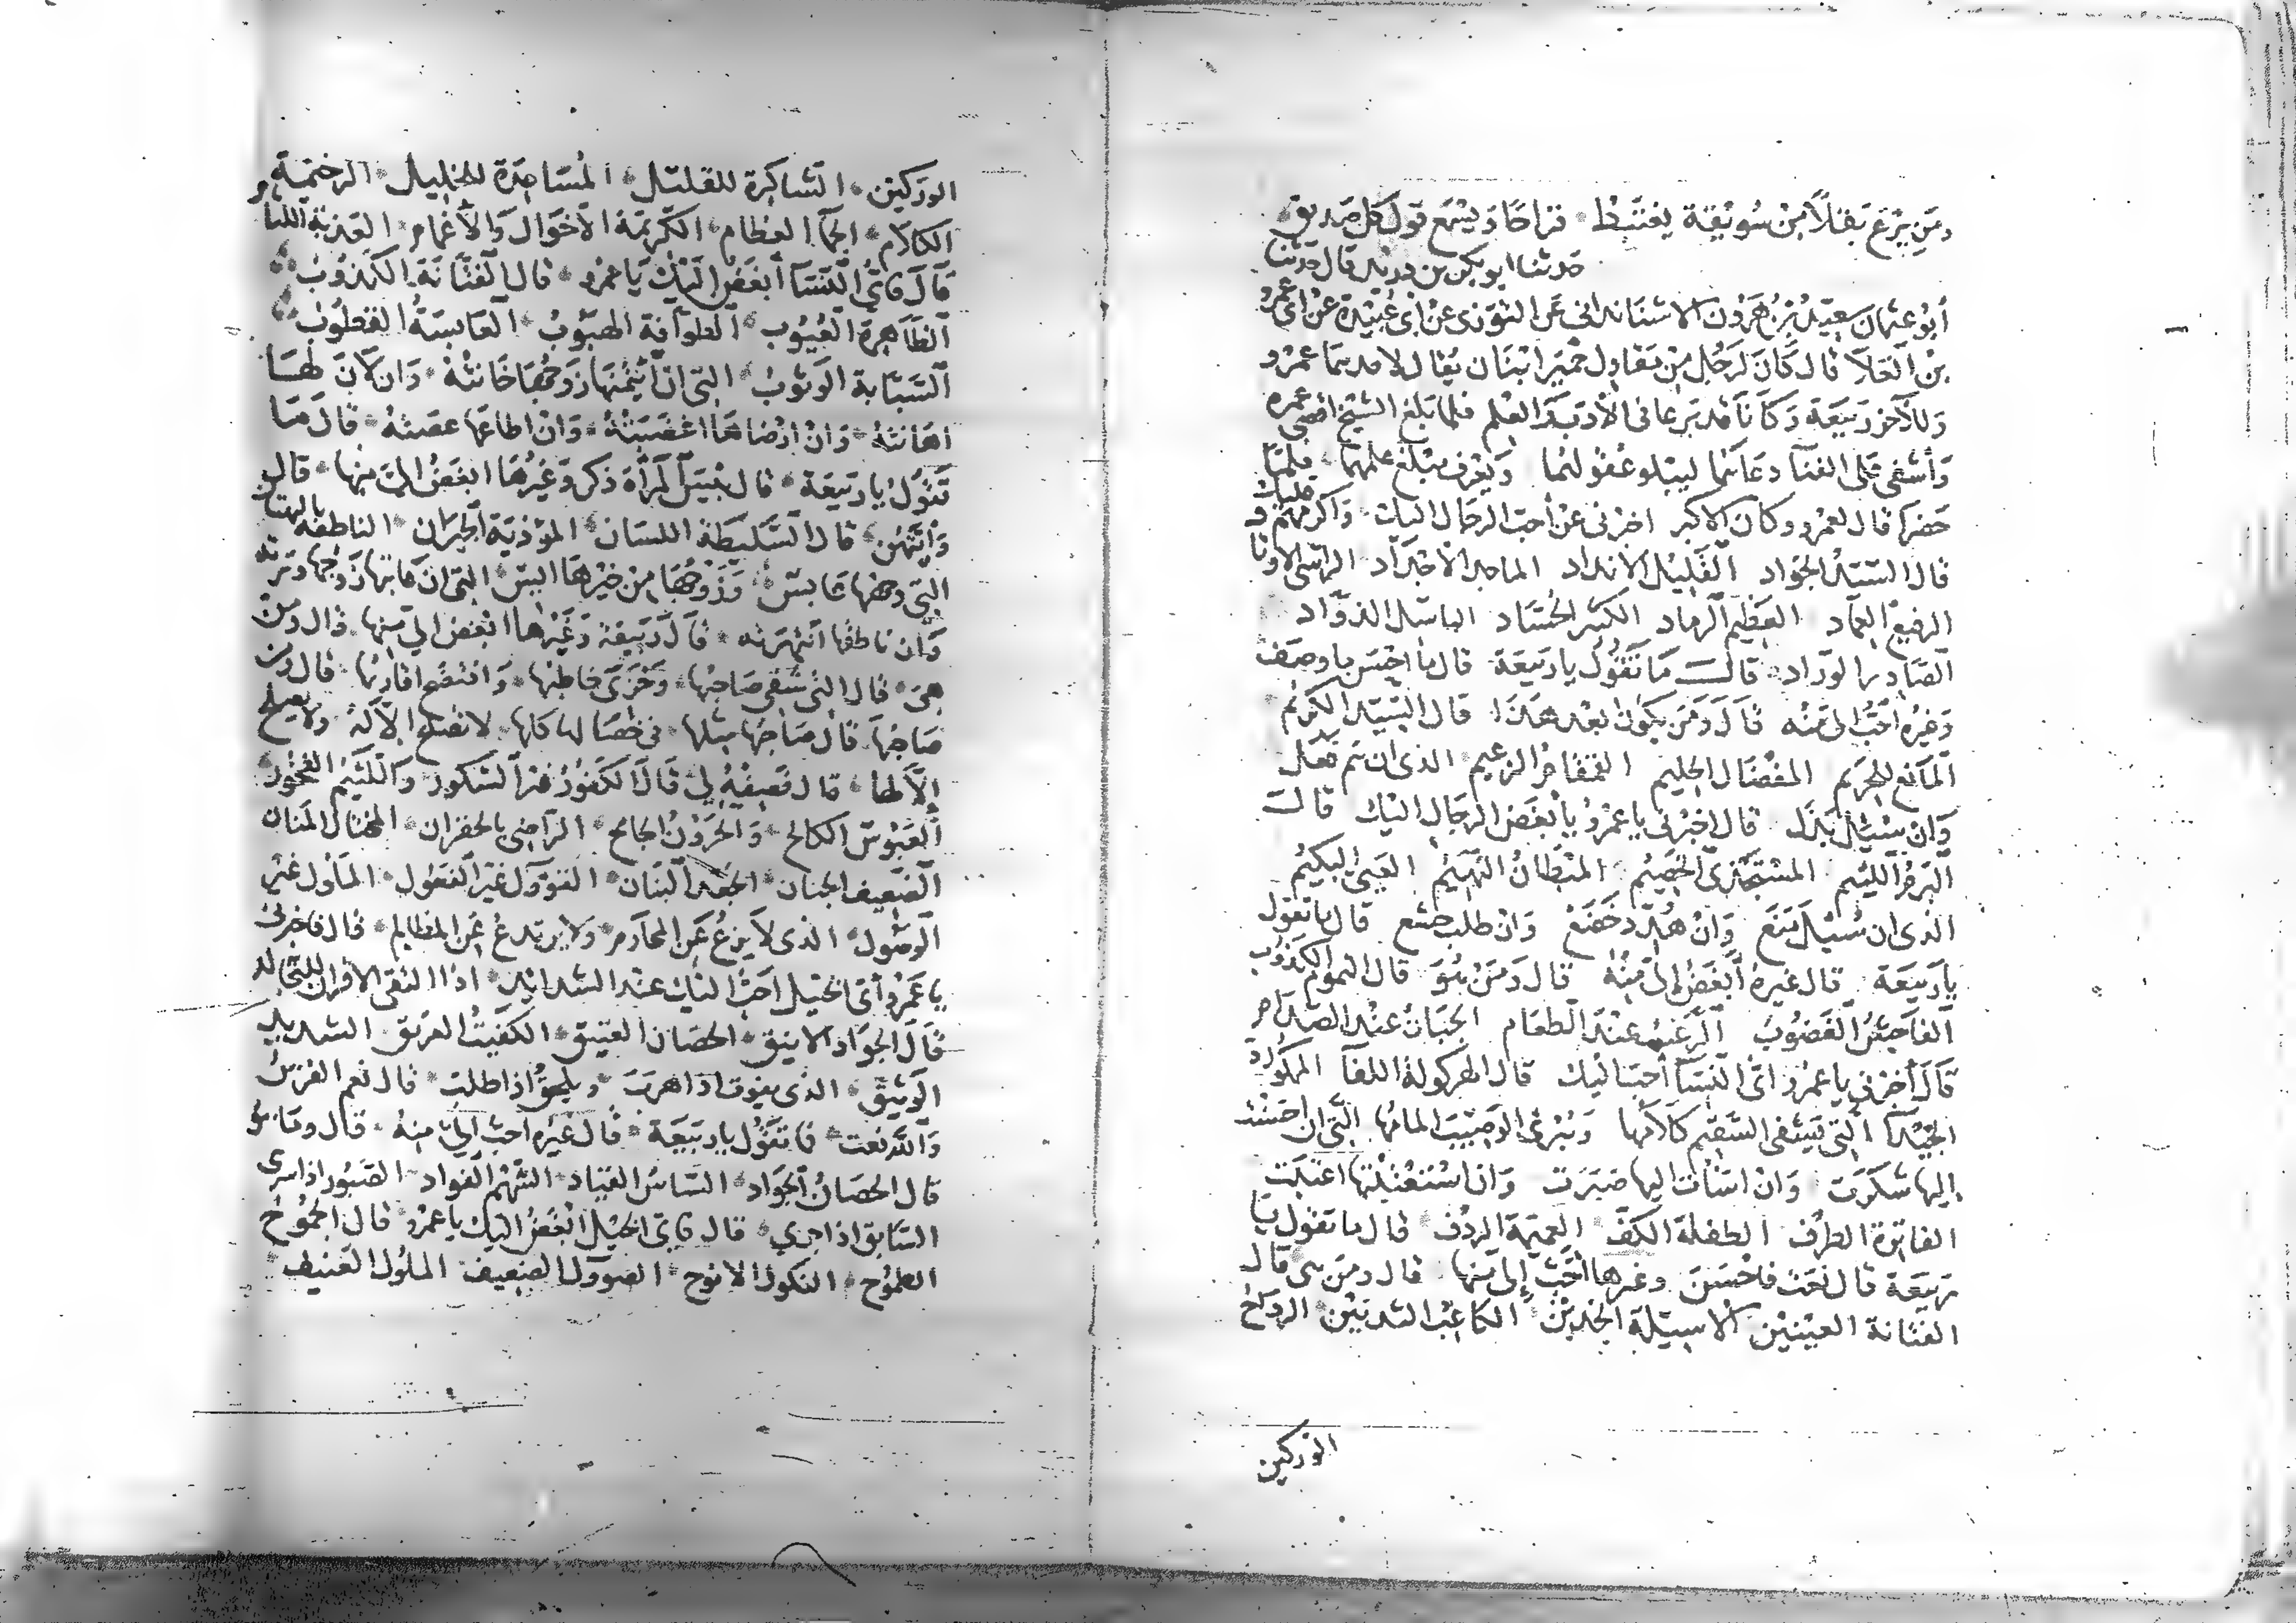 ومن يرع بقلا من سويقة يغتبط قراحا ويسمع قول كل صديق
حدثنا ابو بكر بن دريد قال حدثنا
أبو عثمان سعيد بن هرون الاشنانداني عن التوزي عن ابي عبيدة عن ابي عمرو
بن العلاء قال كان لرجل من مقاول حمير ابنان يقال لاحدهما عمرو
وللآخر ربيعة وكانا قد برعا في الأدب والعلم فلما بلغ الشيخ اقصى عمره
وأشفى على الفناء دعاهما ليبلو عقولهما ويعرف مبلغ علمهما فلما
حضرا قال لعمرو وكان الاكبر اخبرني عن أحب الرجال اليك واكرمهم عليك
قال السيد الجواد القليل الانداد الماجد الأجداد الراسي الاوتاد
الرفيع العماد العظيم الرماد الكثير الحساد الباسل الذواد
الصادر الوراد قال ما تقول يا ربيعة قال ما احسن ما وصف
وغيره أحب الي منه قال ومن يكون بعد هذا قال السيد الكريم
المانع للحريم المفضال الحليم القمقام الزعيم الذي ان هم فعل
وان سئل بذل قال اخبرني يا عمرو بأبغض الرجال اليك قال
البرم اللئيم المستخذي للخصيم المبطان النهيم العيي البكيم
الذي ان سئل منع وان هدد خضع وان طلب جشع قال ما تقول
يا ربيعة قال غيره أبغض الي منه قال ومن هو قال النموم الكذوب
الفاحش الغضوب الرغيب عند الطعام الجبان عند الصدام
قال أخبرني يا عمرو اي النساء أحب اليك قال الهركولة اللفاء الممكورة
الجيداء التي يشفي السقيم كلامها ويبرئ الوصب المامها التي ان احسنت
إليها شكرت وان اسأت اليها صبرت وان استعتبتها اعتبت
الفاترة الطرف الطفلة الكف العميمة الردف قال ما تقول يا
ربيعة قال نعت فاحسن وغيرها أحب إلي منها قال ومن هي قال
الفتانة العينين الاسيلة الخدين الكاعب الثديين الرداح
الوركين
الوركين الشاكرة للقليل المساعدة للحليل الرخيمة
الكلام الجماء العظام الكريمة الأخوال والأعمام العذبة اللثام
قال فأي النساء أبغض اليك يا عمرو قال القتاتة الكذوب
الظاهرة العيوب الطوافة الهبوب العابسة القطوب
السبابة الوثوب التي ان ائتمنها زوجها خانته وان لان لها
اهانته وان ارضاها اغضبته وان اطاعها عصته قال ما
تقول يا ربيعة قال بئس المرأة ذكر وغيرها ابغض الي منها قال
وأيتهن قال السليطة اللسان المؤذية الجيران الناطقة بالبهتان
التي وجهها عابس وزوجها من خيرها آيس التي ان عاتبها زوجها وترته
وان ناطقها انتهرته قال ربيعة وغيرها ابغض الي منها قال ومن
هي قال التي شقي صاحبها وخزي خاطبها وافتضح اقاربها قال ومن
صاحبها قال صاحبها مثلها في خصالها كلها لا تصلح الا له ولا يصلح
إلا لها قال فصفه لي قال الكفور غير الشكور واللئيم الفجور
العبوس الكالح والحرون الجامح الراضي بالهوان المختال المنان
الضعيف الجنان الجعد البنان القوول غير الفعول الملول غير
الوصول الذي لا يرع عن المحارم ولا يرتدع عن المظالم قال فاخبرني
يا عمرو أي الخيل احب اليك عند الشدائد اذا التقى الاقران للتجالد
قال الجواد الانيق الحصان العتيق الكفيت العريق الشديد
الوثيق الذي يفوت اذا هرب ويلحق اذا طلب قال نعم الفرس
والله نعت فما تقول يا ربيعة قال غيره احب الي منه قال وما هو
قال الحصان الجواد السلس القياد الشهم الفؤاد الصبور اذا سرى
السابق اذا جرى قال فأي الخيل ابغض اليك يا عمرو قال الجموح
الطموح النكول الانوح الصوول الضعيف الملول العنيف